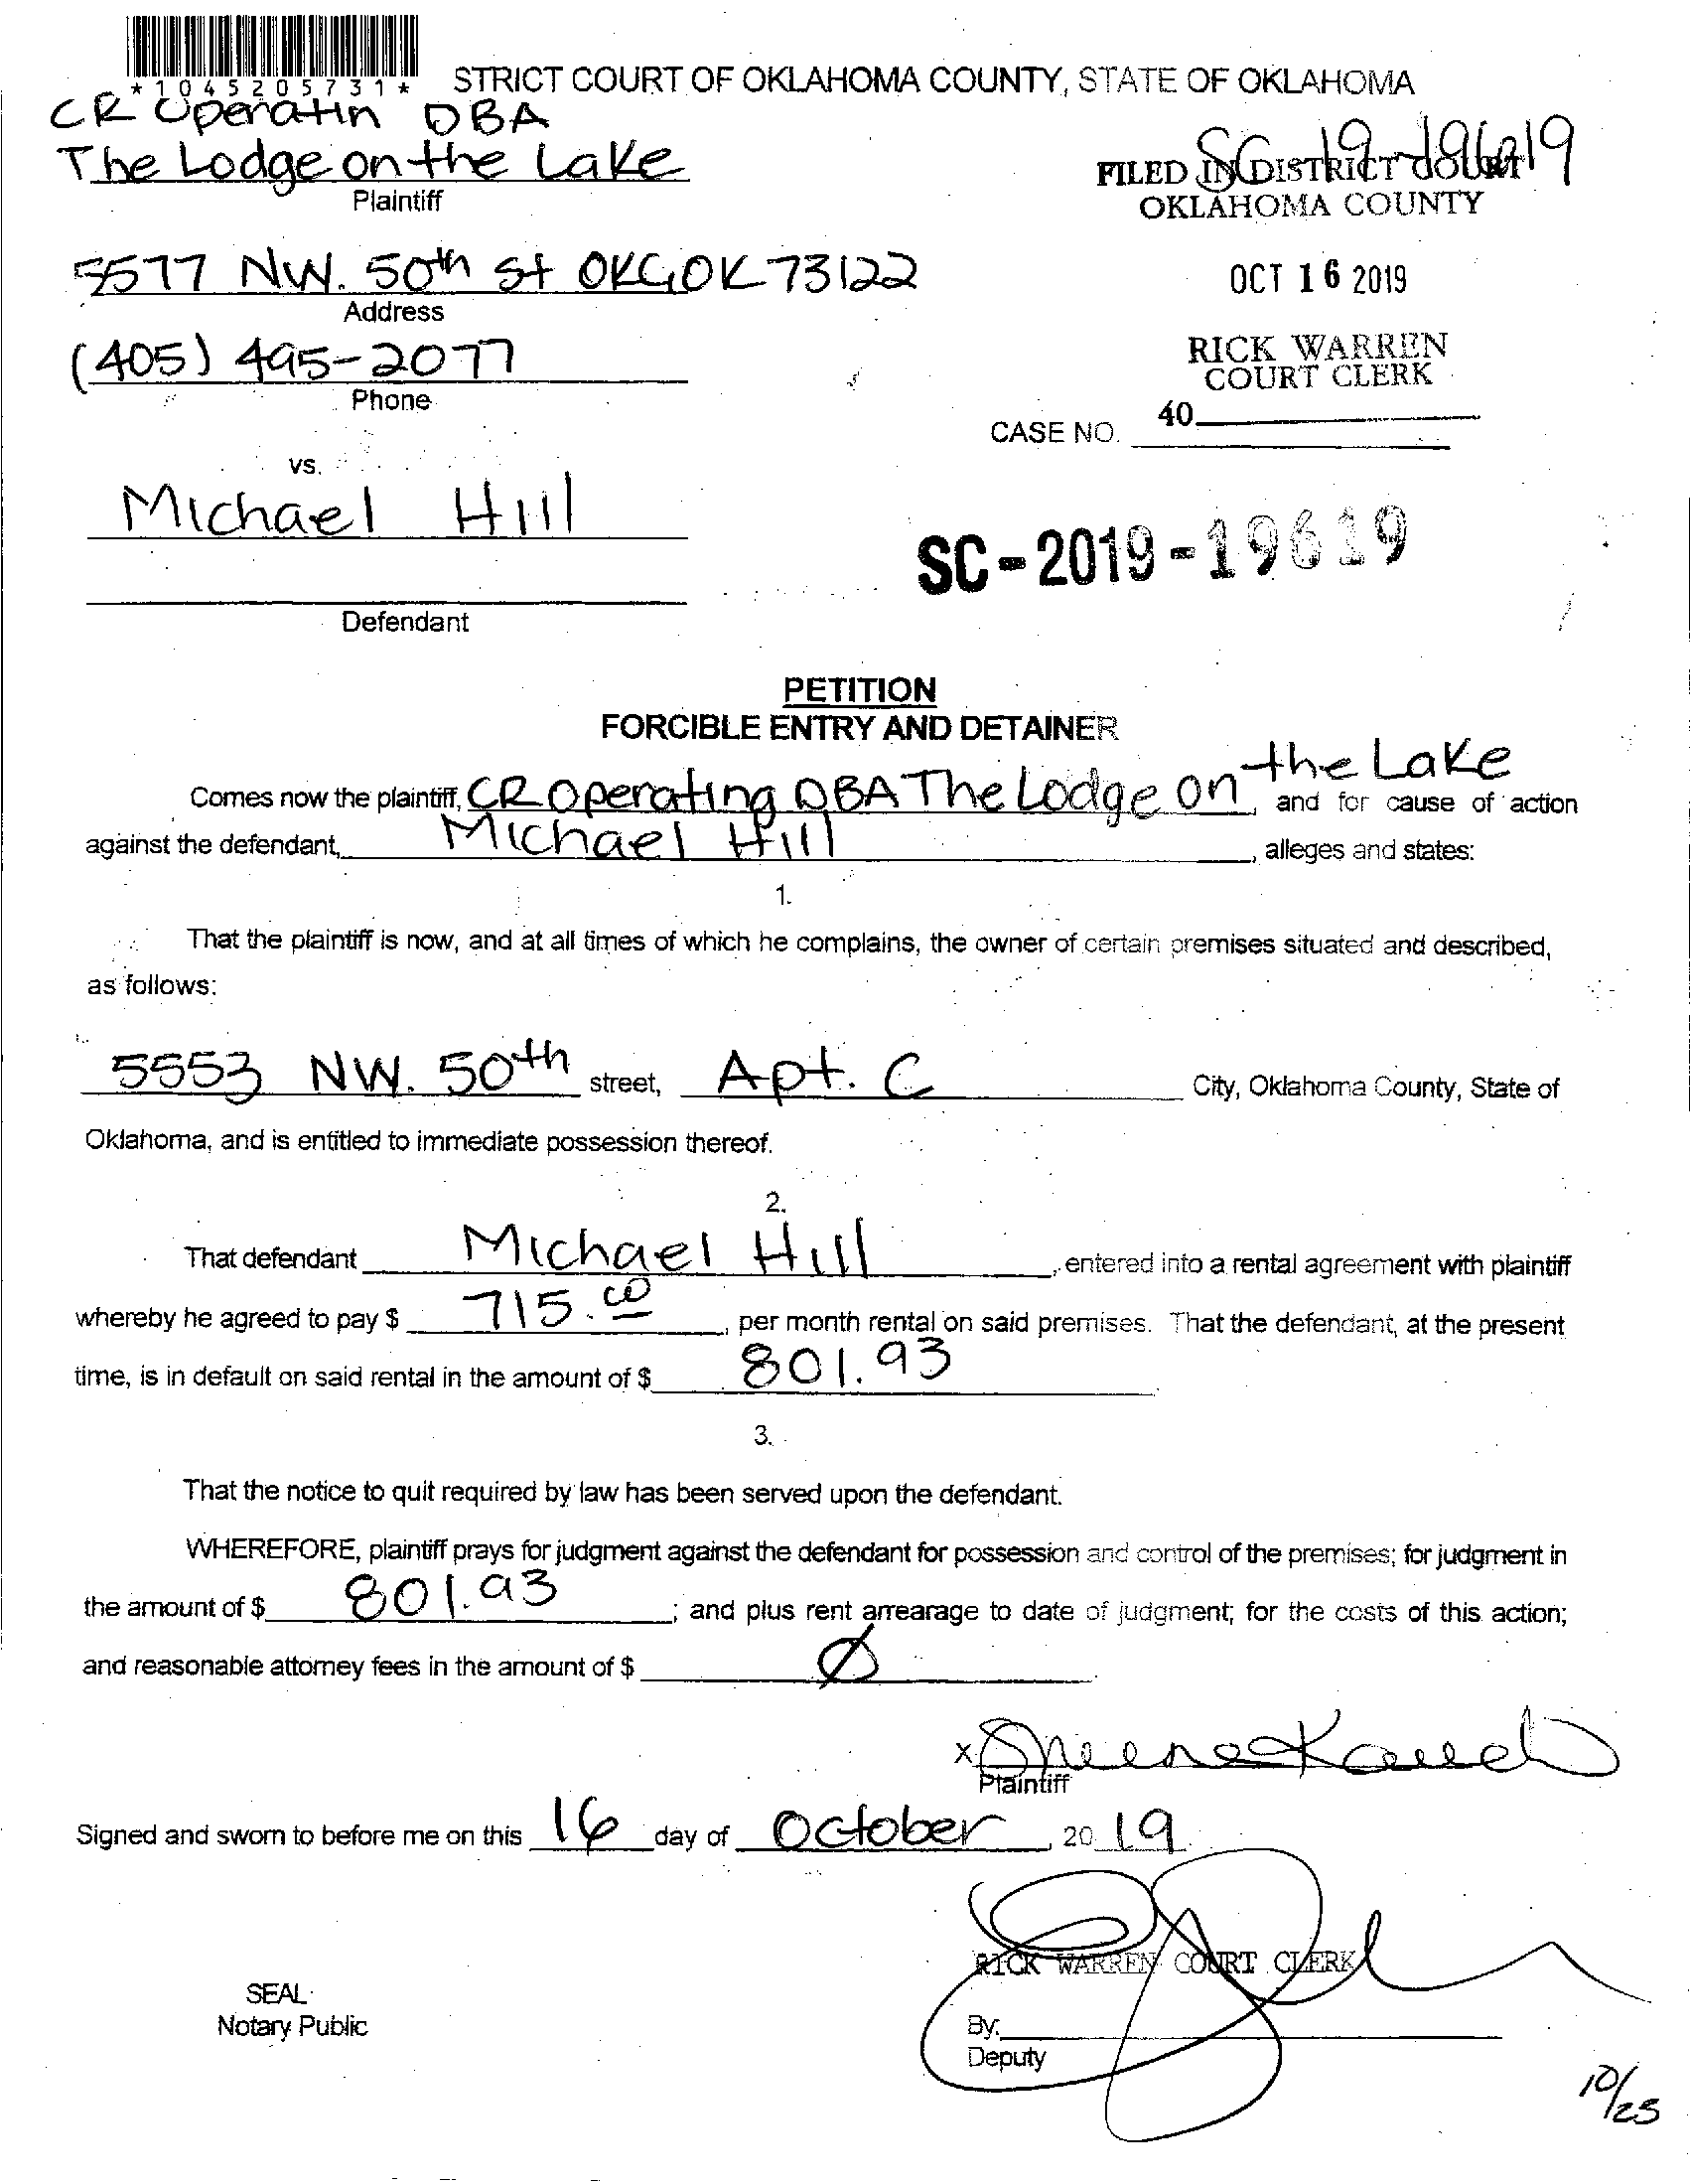 *1045205731*
STRICT COURT OF OKLAHOMA COUNTY, STATE OF OKLAHOMA
CR Operatin DBA
The Lodge on the Lake
Plaintiff
SC-19-19619
FILED IN DISTRICT COURT
OKLAHOMA COUNTY
5577 NW. 50th St OKC, OK 73122
Address
OCT 16 2019
(405) 495-2077
Phone
RICK WARREN
COURT CLERK
40
CASE NO.
vs.
Michael Hill
SC-2019-19619
Defendant
PETITION
FORCIBLE ENTRY AND DETAINER
Comes now the plaintiff, CR Operating DBA The Lodge on the Lake, and for cause of action
against the defendant, Michael Hill, alleges and states:
1.
That the plaintiff is now, and at all times of which he complains, the owner of certain premises situated and described,
as follows:
5553 NW. 50th street, Apt. C City, Oklahoma County, State of
Oklahoma, and is entitled to immediate possession thereof.
2.
That defendant Michael Hill, entered into a rental agreement with plaintiff
whereby he agreed to pay $ 715.00, per month rental on said premises. That the defendant, at the present
time, is in default on said rental in the amount of $ 801.93
3.
That the notice to quit required by law has been served upon the defendant.
WHEREFORE, plaintiff prays for judgment against the defendant for possession and control of the premises; for judgment in
the amount of $ 801.93; and plus rent arrearage to date of judgment; for the costs of this action;
and reasonable attorney fees in the amount of $ Ø
x
Plaintiff
Signed and sworn to before me on this 16 day of October, 2019
RICK WARREN COURT CLERK
SEAL
Notary Public
By:
Deputy
10/25